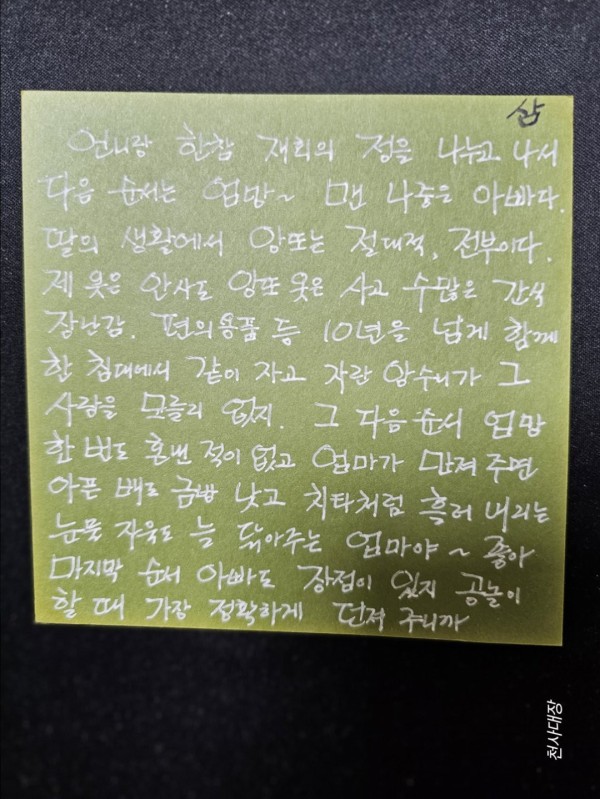 삼
언니랑 한참 재회의 정을 나누고 나서
다음 순서는 엄망~ 맨 나중은 아빠다.
딸의 생활에서 앙또는 절대적, 전부이다.
제 옷은 안사도 앙또 옷은 사고 수많은 간식
장난감. 편의용품 등 10년을 넘게 함께
한 침대에서 같이 자고 자란 암수니가 그
사랑을 모를리 없지. 그 다음 순서 엄망
한 번도 혼낸 적이 없고 엄마가 만져 주면
아픈 배도 금방 낫고 치타처럼 흘러 내리는
눈물 자욱도 늘 닦아주는 엄마야~ 좋아
마지막 순서 아빠도 장점이 있지 공놀이
할 때 가장 정확하게 던져 주니까
천사대장